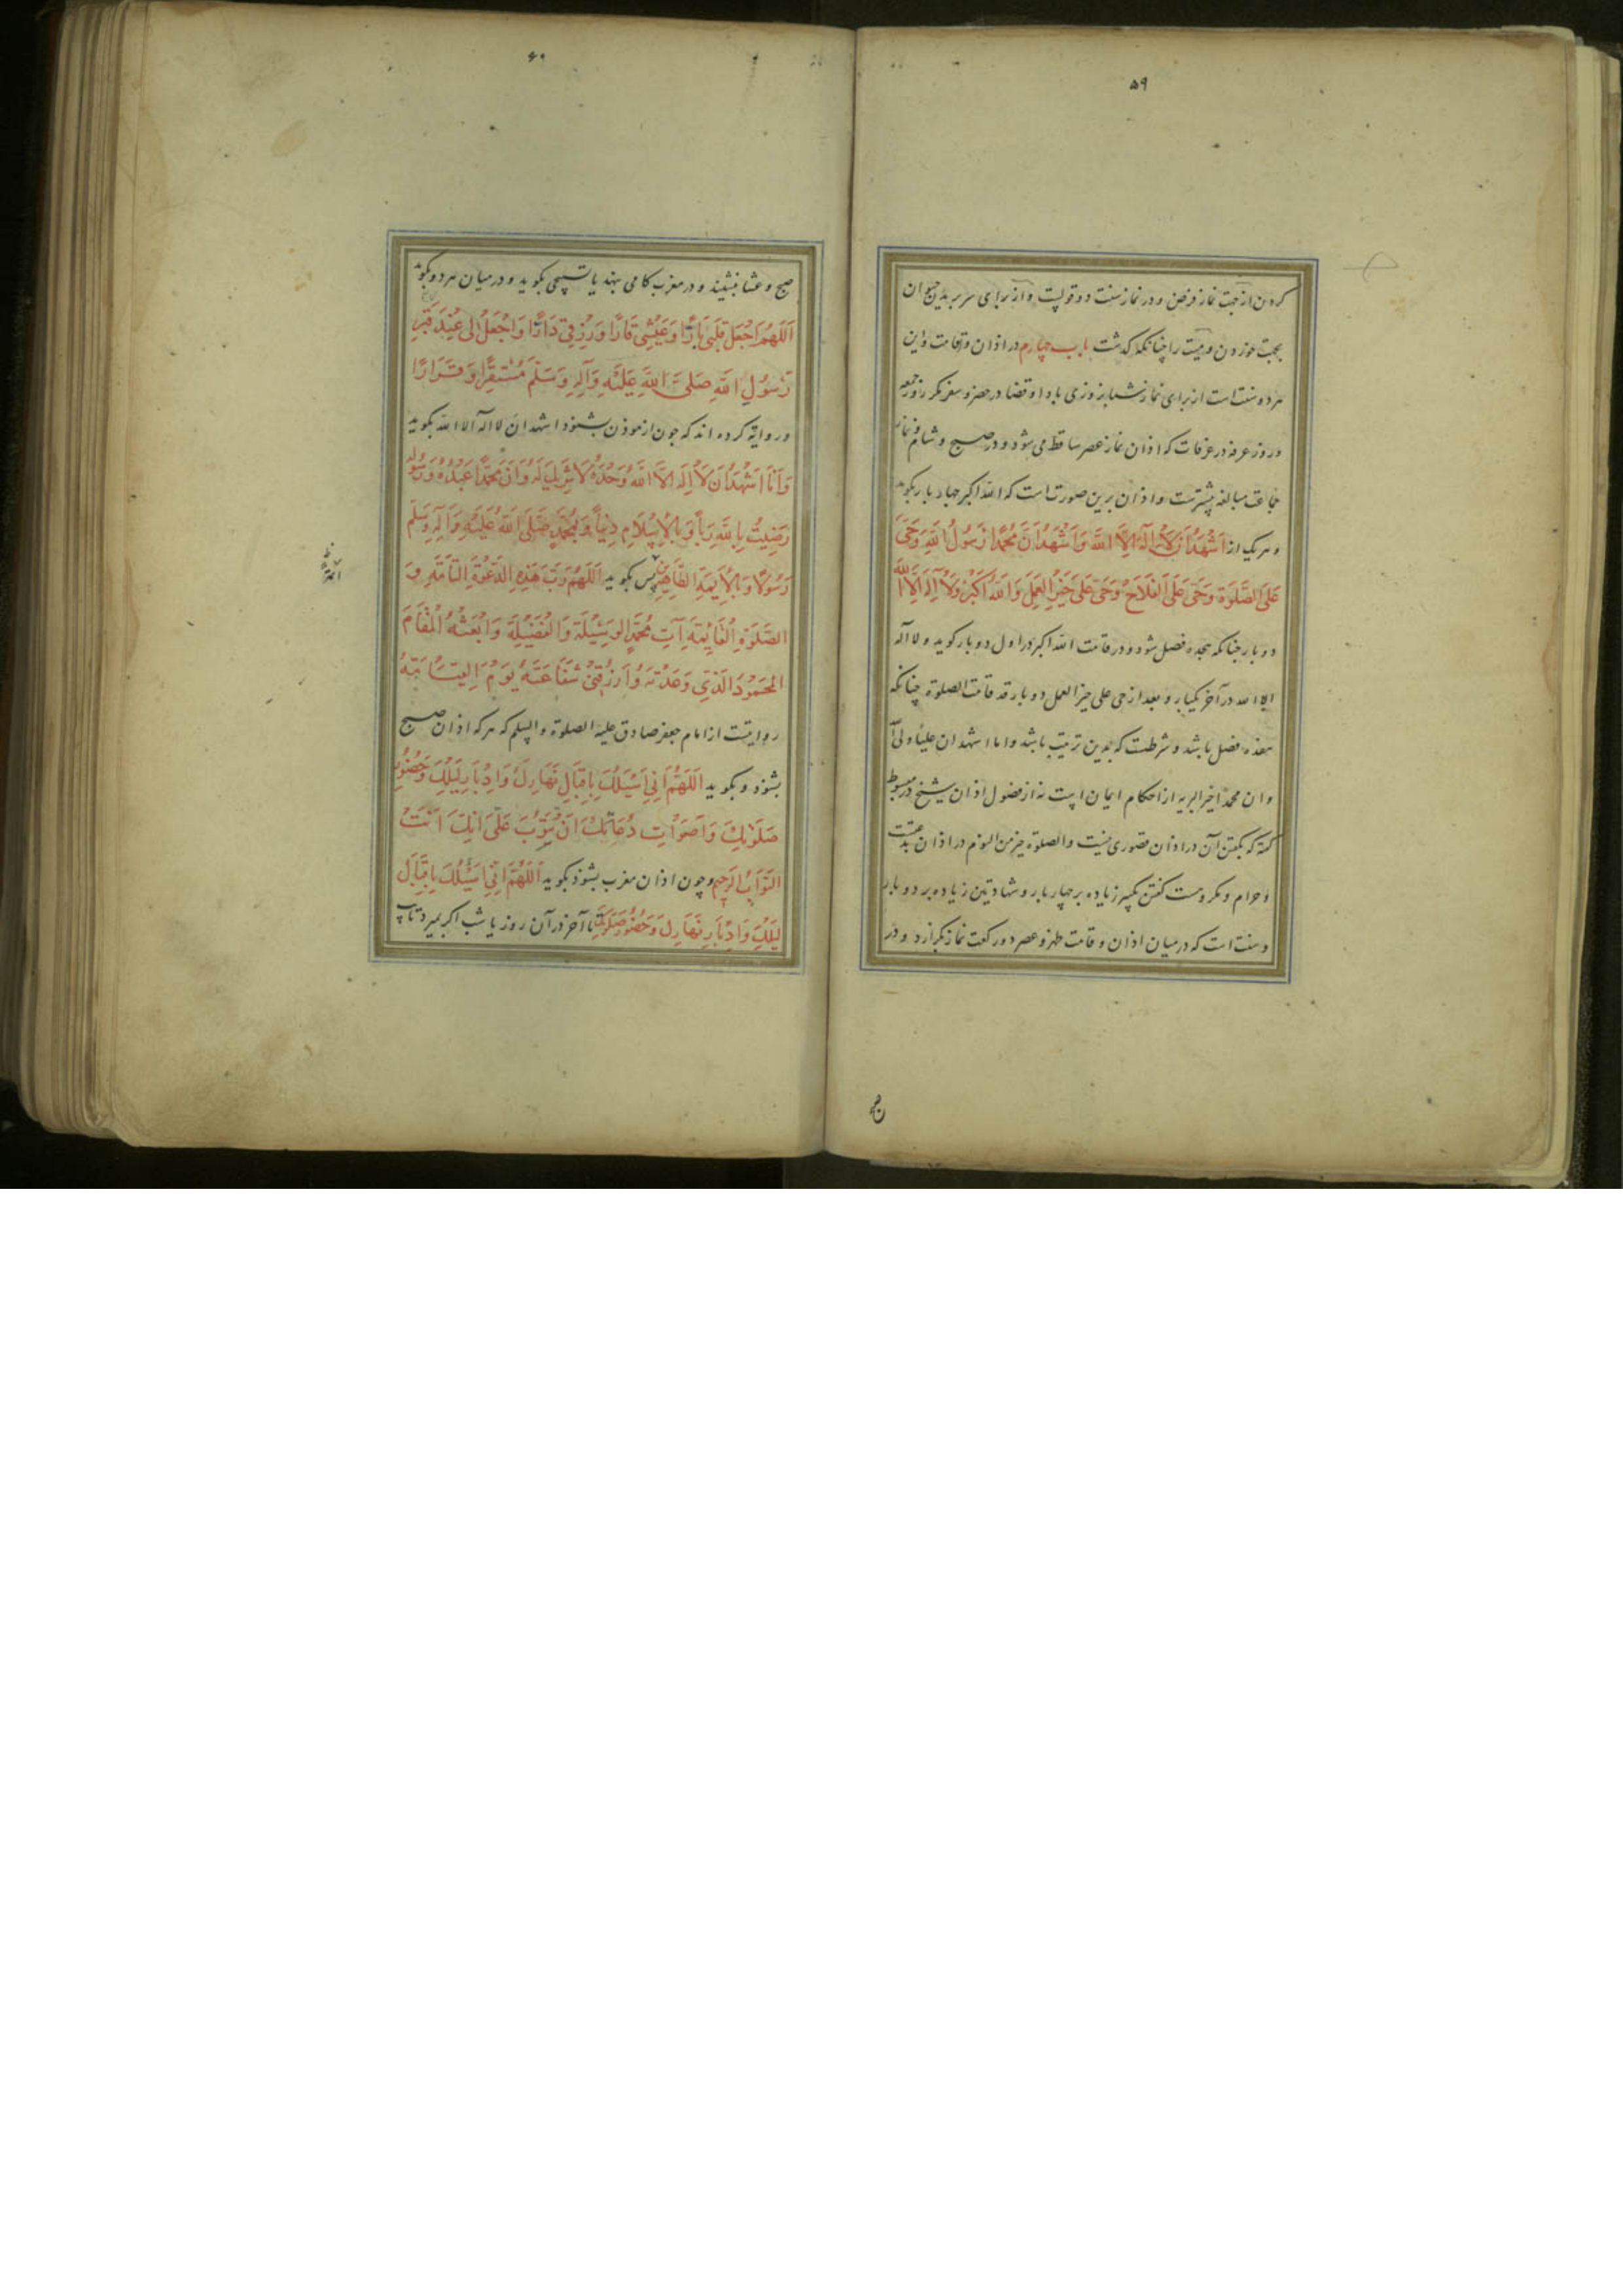 ۵۹
کردن از جهت نماز فرض و در نماز سنت دو قولست و از برای سر بریدن حیوان
بجهت خوردن و میت را چنانکه گذشت باب چهارم در اذان و اقامت و این
هر دو سنت است از برای نماز شبانروزی با ادا و قضا در حضر و سفر مگر روز جمعه
و روز عرفه در عرفات که اذان نماز عصر ساقط می شود و در صبح و شام و نماز
جماعت مبالغه بیشترست و اذان برین صورت است که الله اکبر چهار بار بگوید
و هر یک از اَشْهَدُ اَنْ لَا اِلَهَ اِلَّا اللَّه وَاَشْهَدُ اَنَّ مُحَمَّدًا رَسُولُ اللَّهِ وَحَیَّ
عَلَی الصَّلَوةِ وَحَیَّ عَلَی الفَلَاحِ وَحَیَّ عَلَی خَیْرِ العَمَلِ وَاللَّهُ اَکْبَرُ وَلَا اِلَهَ اِلَّا اللَّه
دو بار چنانکه هجده فصل شود و در قامت الله اکبر در اول دو بار گوید و لا اله
الا الله در آخر یکبار و بعد از حی علی خیر العمل دو بار قد قامت الصلوة چنانکه
هفده فصل باشد و شرطست که بدین ترتیب باشد و اما اشهد ان علیاً ولی الله
و ان محمدًا خیر البریه از احکام ایمان است نه از فصول اذان شیخ در مبسوط
گفته که بگفتن آن در اذان قصوری نیست و الصلوة خیر من النوم در اذان بدعتست
و حرام و مکروهست گفتن تکبیر زیاده بر چهار بار و شهادتین زیاده بر دو بار
و سنت است که در میان اذان و قامت ظهر و عصر دو رکعت نماز بگزارد و در
صبح
۶۰
صبح و عشا بنشیند و در مغرب کامی بنهد یا تسبیحی بگوید و در میان هر دو بگوید
اَللَّهُمَّ اجْعَلْ قَلْبِی بَارًّا وَعَیْشِی قَارًّا وَرِزْقِی دَارًّا وَاجْعَلْ لِی عِنْدَ قَبْرِ
رَسُولِ اللَّهِ صَلَّی اللَّه عَلَیْهِ وَآلِهِ وَسَلَّمَ مُسْتَقَرًّا وَقَرَارًا
و روایة کرده اند که چون از موذن بشنود اشهد ان لا اله الا الله بگوید
وَاَنَا اَشْهَدُ اَنْ لَا اِلَهَ اِلَّا اللَّه وَحْدَهُ لَا شَرِیکَ لَهُ وَاَنَّ مُحَمَّدًا عَبْدُهُ وَرَسُولُهُ
رَضِیتُ بِاللَّهِ رَبًّا وَبِالْاِسْلَامِ دِینًا وَبِمُحَمَّدٍ صَلَّی اللَّهُ عَلَیْهِ وَآلِهِ وَسَلَّمَ
رَسُولًا وَبِالْاَیِمَّةِ الطَّاهِرِینَ پس بگوید اَللَّهُمَّ رَبَّ هَذِهِ الدَّعْوَةِ التَّامَّةِ وَ
الصَّلَوةِ الْقَائِمَةِ آتِ مُحَمَّدٍ الوَسِیْلَةَ وَالْفَضِیْلَةَ وَابْعَثْهُ الْمَقَامَ
الْمَحْمُودَ الَّذِی وَعَدْتَهُ وَارْزُقْنِی شَفَاعَتَهُ یَوْمَ الْقِیَامَةِ
روایتست از امام جعفر صادق علیه الصلوة والسلم که هر که اذان صبح
بشنود و بگوید اَللَّهُمَّ اِنِّی اَسْئَلُکَ بِاِقْبَالِ نَهَارِکَ وَاِدْبَارِ لَیْلِکَ وَحُضُورِ
صَلَوَاتِکَ وَاَصْوَاتِ دُعَائِکَ اَنْ تَتُوبَ عَلَیَّ اِنَّکَ اَنْتَ
التَّوَّابُ الرَّحِیمُ و چون اذان مغرب بشنود بگوید اَللَّهُمَّ اِنِّی اَسْئَلُکَ بِاِقْبَالِ
لَیْلِکَ وَاِدْبَارِ نَهَارِکَ وَحُضُورِ صَلَوَاتِکَ تا آخر در آن روز یا شب اگر بمیرد تایب